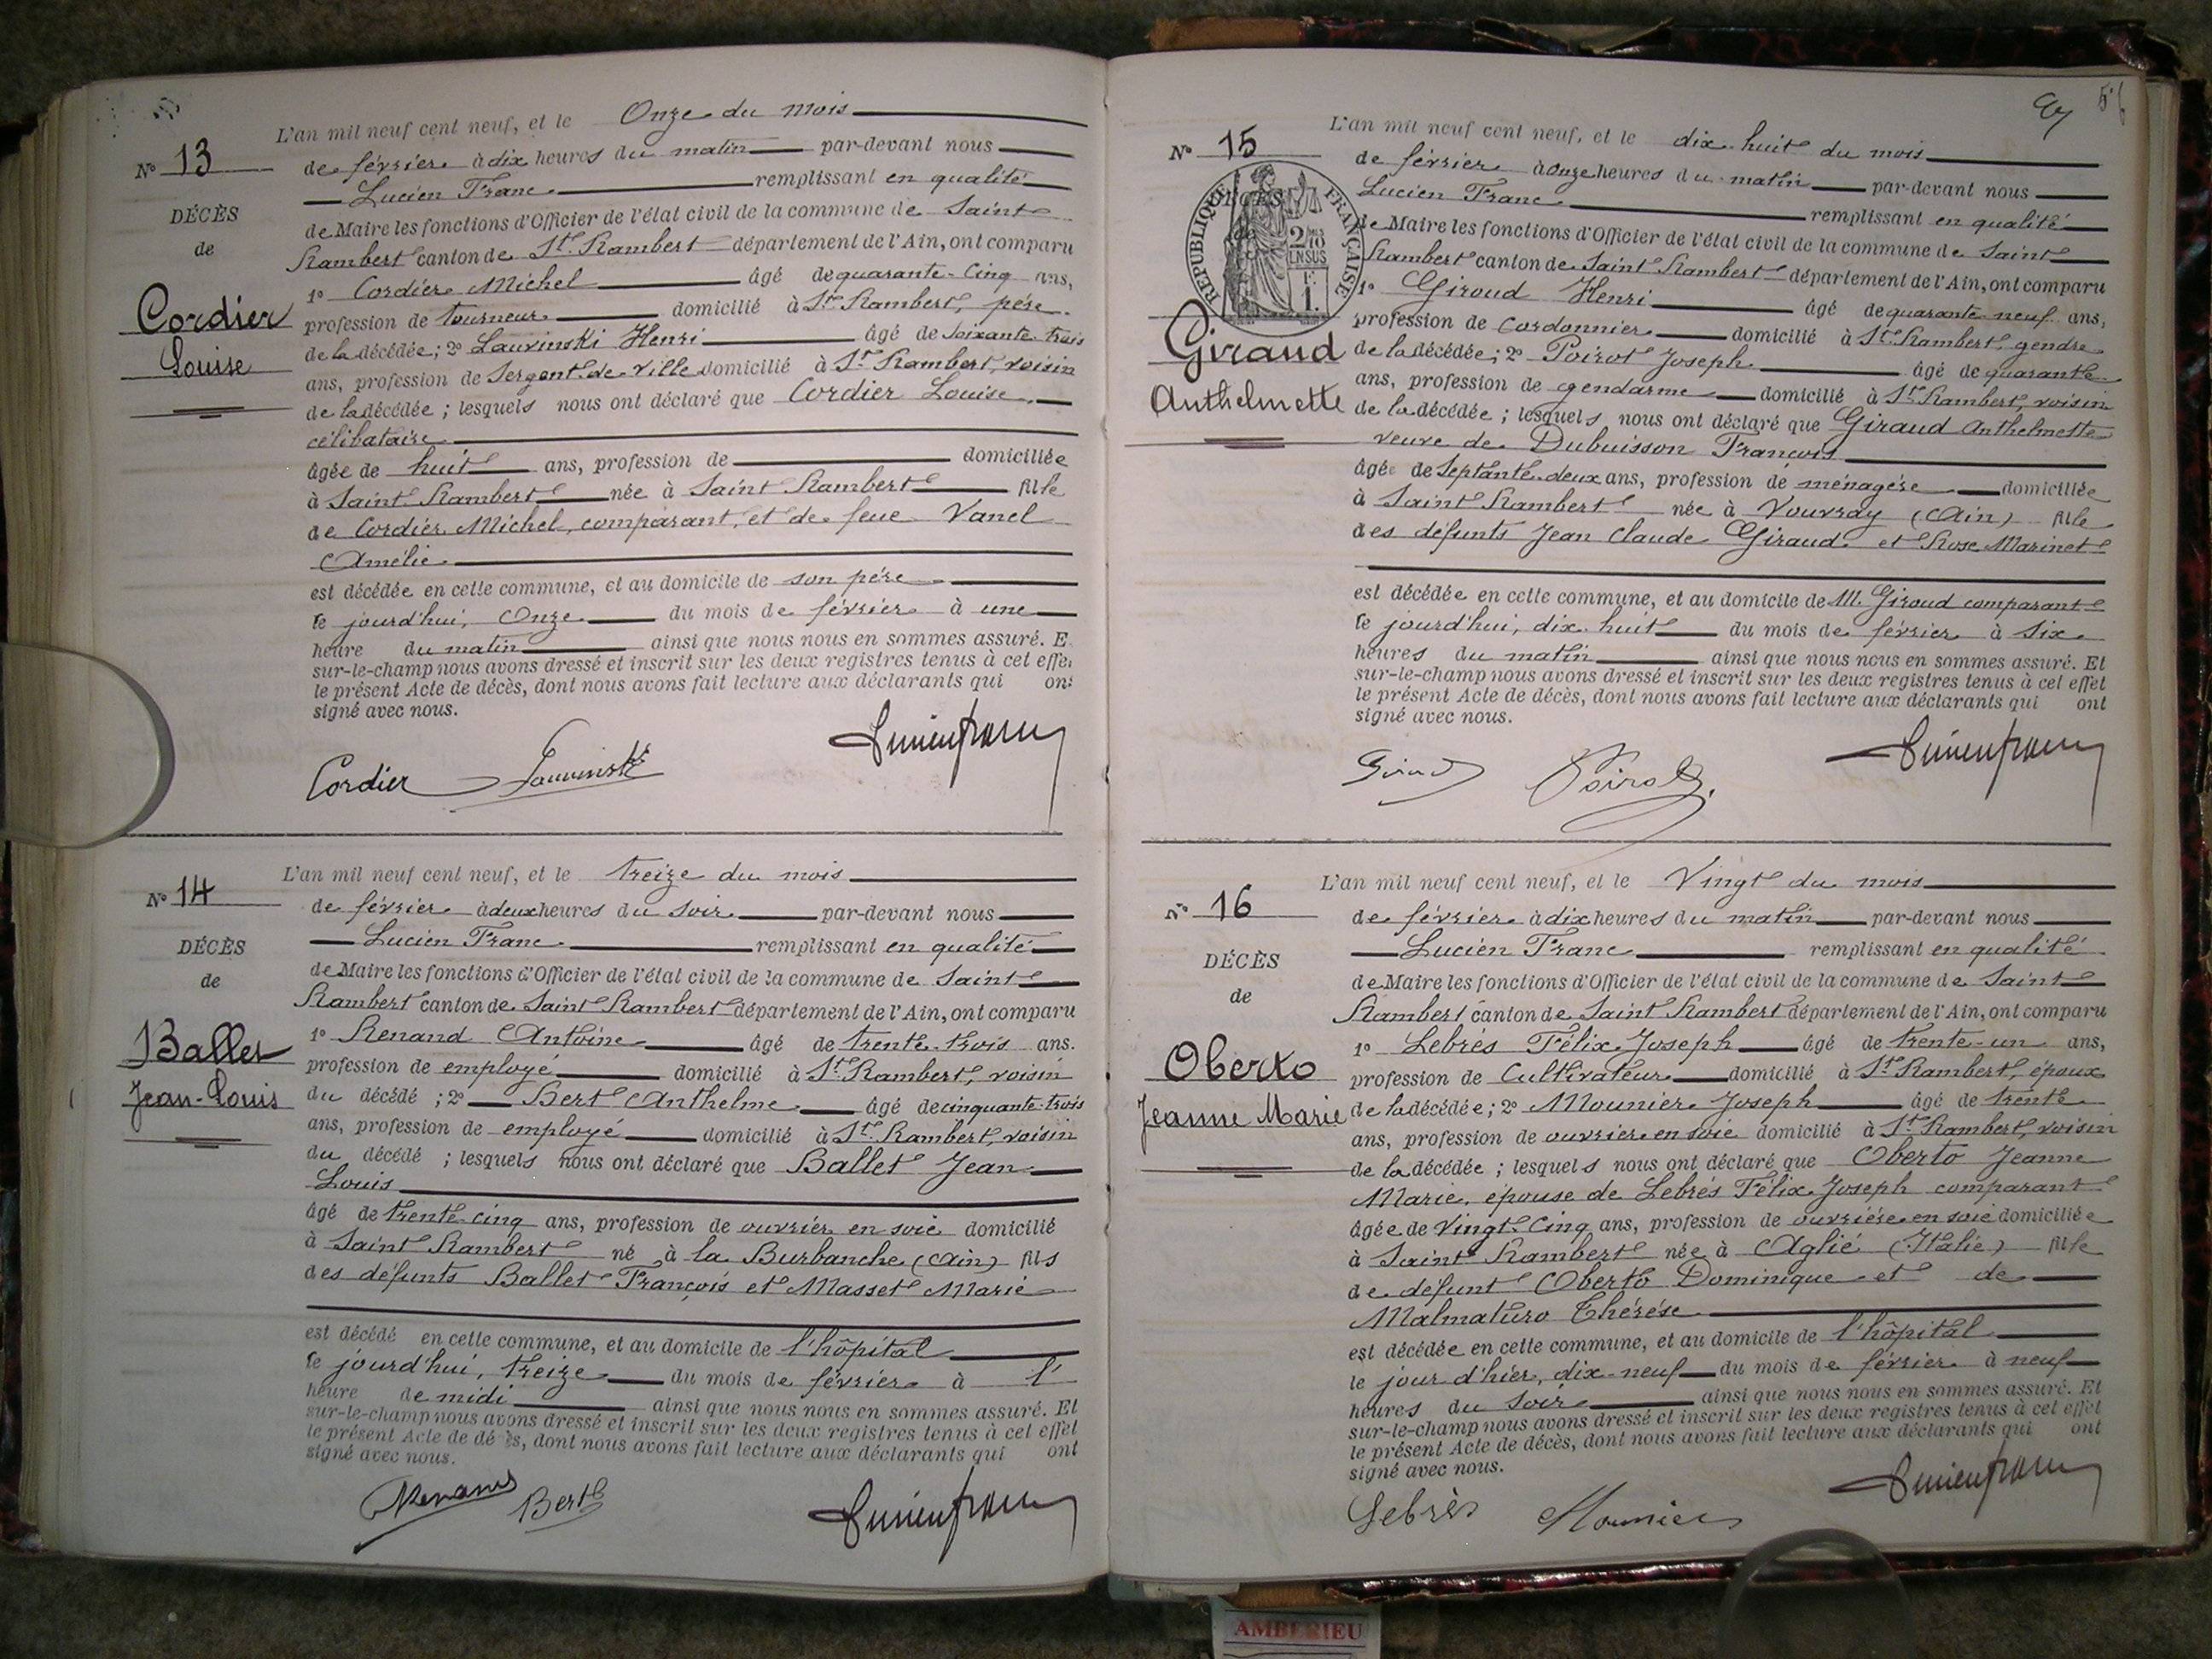 L'an mil neuf cent neuf, et le Onze du mois
N° 13
de février à dix heures du matin par-devant nous
Lucien Franc remplissant en qualité
DÉCÈS
de Maire les fonctions d'Officier de l'état civil de la commune de Saint
de
Rambert canton de St Rambert département de l'Ain, ont comparu
1° Cordier Michel âgé de quarante-cinq ans,
Cordier
profession de tourneur domicilié à St Rambert, père
Louise
de la décédée; 2° Lauvinski Henri âgé de soixante-trois
ans, profession de Sergent-de-Ville domicilié à St Rambert, voisin
de la décédée; lesquels nous ont déclaré que Cordier Louise
célibataire
âgée de huit ans, profession de domiciliée
à Saint Rambert née à Saint Rambert fille
de Cordier Michel, comparant, et de feue Vanel
Amélie
est décédée en cette commune, et au domicile de son père
le jourd'hui, Onze du mois de février à une
heure du matin ainsi que nous nous en sommes assuré. E
sur-le-champ nous avons dressé et inscrit sur les deux registres tenus à cet effet
le présent Acte de décès, dont nous avons fait lecture aux déclarants qui ont
signé avec nous.
Cordier Lauvinski Lucien Franc
L'an mil neuf cent neuf, et le treize du mois
N° 14
de février à deux heures du soir par-devant nous
DÉCÈS
Lucien Franc remplissant en qualité
de Maire les fonctions d'Officier de l'état civil de la commune de Saint
de
Rambert canton de Saint Rambert département de l'Ain, ont comparu
1° Renand Antoine âgé de trente-trois ans.
Ballet
profession de employé domicilié à St Rambert, voisin
Jean-Louis
du décédé; 2° Bert Anthelme âgé de cinquante-trois
ans, profession de employé domicilié à St Rambert, voisin
du décédé; lesquels nous ont déclaré que Ballet Jean
Louis
âgé de trente-cinq ans, profession de ouvrier en soie domicilié
à Saint Rambert né à la Burbanche (Ain) fils
des défunts Ballet François et Masset Marie
est décédé en cette commune, et au domicile de l'hôpital
le jourd'hui, treize du mois de février à l'
heure de midi ainsi que nous nous en sommes assuré. Et
sur-le-champ nous avons dressé et inscrit sur les deux registres tenus à cet effet
le présent Acte de décès, dont nous avons fait lecture aux déclarants qui ont
signé avec nous.
Renand Bert Lucien Franc
56
L'an mil neuf cent neuf, et le dix-huit du mois
N° 15
de février à onze heures du matin par-devant nous
Lucien Franc remplissant en qualité
RÉPUBLIQUE FRANÇAISE
2/10 EN SUS
de Maire les fonctions d'Officier de l'état civil de la commune de Saint
Rambert canton de Saint Rambert département de l'Ain, ont comparu
1° Giroud Henri âgé de quarante-neuf ans,
profession de cordonnier domicilié à St Rambert, gendre
Giraud
de la décédée; 2° Poirot Joseph âgé de quarante
Anthelmette
ans, profession de gendarme domicilié à St Rambert, voisin
de la décédée; lesquels nous ont déclaré que Giraud Anthelmette
veuve de Dubuisson François
âgée de Septante-deux ans, profession de ménagère domiciliée
à Saint Rambert née à Vouvray (Ain) fille
des défunts Jean Claude Giraud et Rose Marinet
est décédée en cette commune, et au domicile de M. Giroud comparant
le jourd'hui, dix-huit du mois de février à six
heures du matin ainsi que nous nous en sommes assuré. Et
sur-le-champ nous avons dressé et inscrit sur les deux registres tenus à cet effet
le présent Acte de décès, dont nous avons fait lecture aux déclarants qui ont
signé avec nous.
Giroud Poirot Lucien Franc
L'an mil neuf cent neuf, et le Vingt du mois
N° 16
de février à dix heures du matin par-devant nous
Lucien Franc remplissant en qualité
DÉCÈS
de Maire les fonctions d'Officier de l'état civil de la commune de Saint
de
Rambert canton de Saint Rambert département de l'Ain, ont comparu
1° Lebrés Félix Joseph âgé de trente-un ans,
Oberto
profession de Cultivateur domicilié à St Rambert, époux
Jeanne Marie
de la décédée; 2° Mounier Joseph âgé de trente
ans, profession de ouvrier en soie domicilié à St Rambert, voisin
de la décédée; lesquels nous ont déclaré que Oberto Jeanne
Marie, épouse de Lebrés Félix Joseph comparant
âgée de vingt-cinq ans, profession de ouvrière en soie domiciliée
à Saint Rambert née à Aglié (Italie) fille
de défunt Oberto Dominique et de
Malmaturo Thérèse
est décédée en cette commune, et au domicile de l'hôpital
le jour d'hier, dix-neuf du mois de février à neuf
heures du soir ainsi que nous nous en sommes assuré. Et
sur-le-champ nous avons dressé et inscrit sur les deux registres tenus à cet effet
le présent Acte de décès, dont nous avons fait lecture aux déclarants qui ont
signé avec nous.
Lebrès Mounier Lucien Franc
AMBERIEU